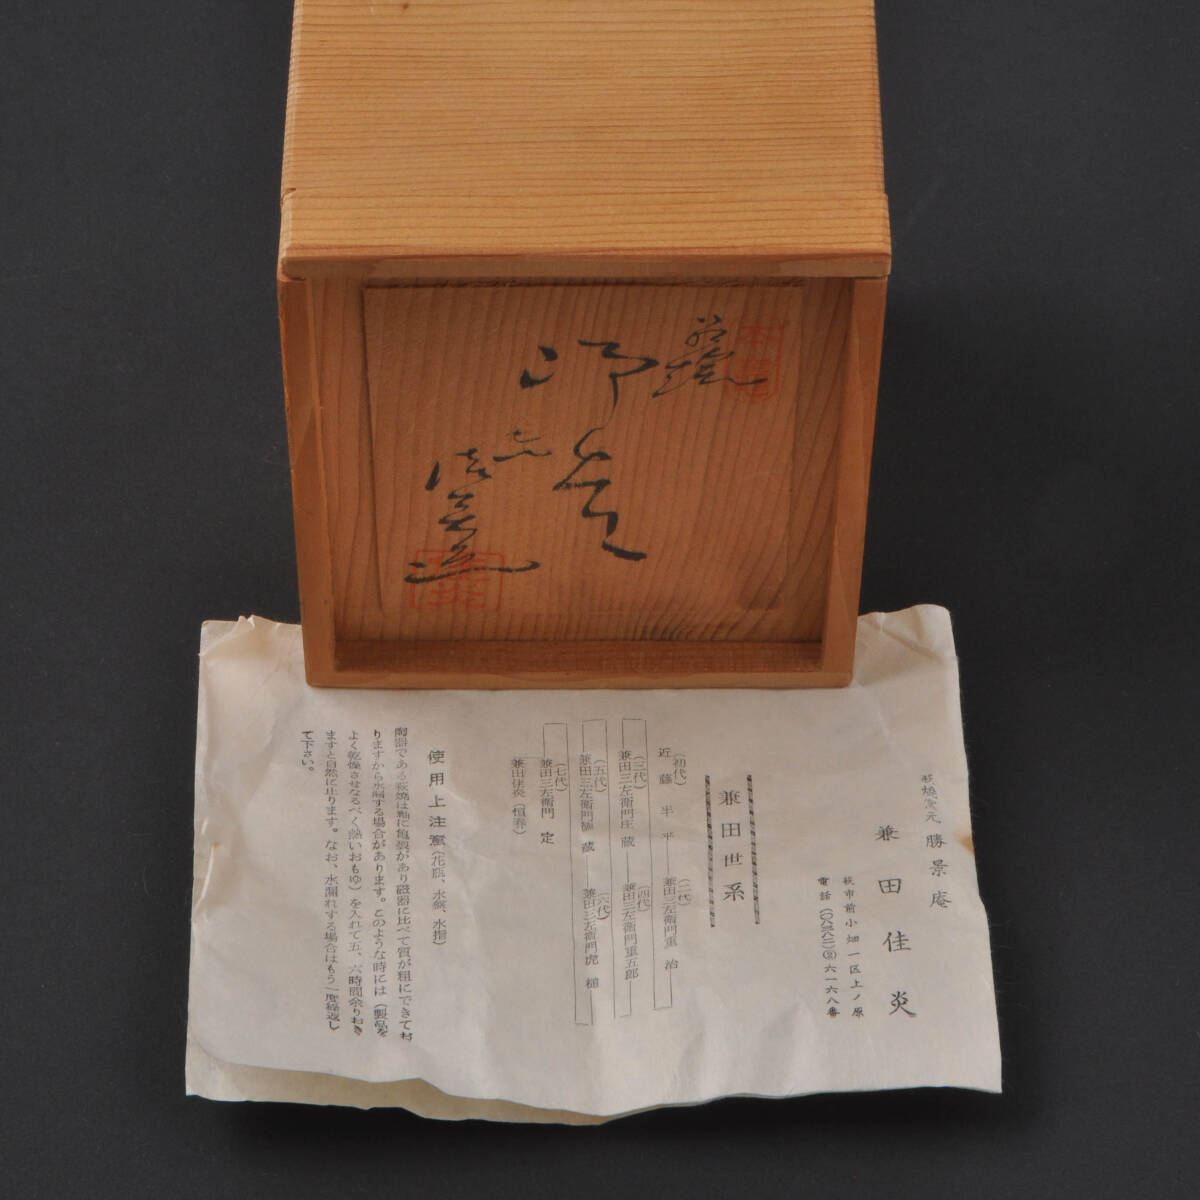 萩焼窯元 勝景庵
兼田佳炎
萩市前小畑一区上ノ原
電話(〇八三八二)②六一六八番
兼田世系
(初代)
近藤半平
(二代)
兼田三左衛門重治
(三代)
兼田三左衛門庄蔵
(四代)
兼田三左衛門重五郎
(五代)
兼田三左衛門植蔵
(六代)
兼田三左衛門虎槌
(七代)
兼田三左衛門 定
兼田佳炎(恒寿)
使用上注意(花瓶、水盤、水指)
陶器である萩焼は釉に亀裂があり磁器に比べて質が粗にできてお
りますから水漏する場合があります。このような時には(製品を
よく乾燥させなるべく熱いおもゆ)を入れて五、六時間余りおき
ますと自然に止ります。なお、水漏れする場合はもう一度繰返し
て下さい。